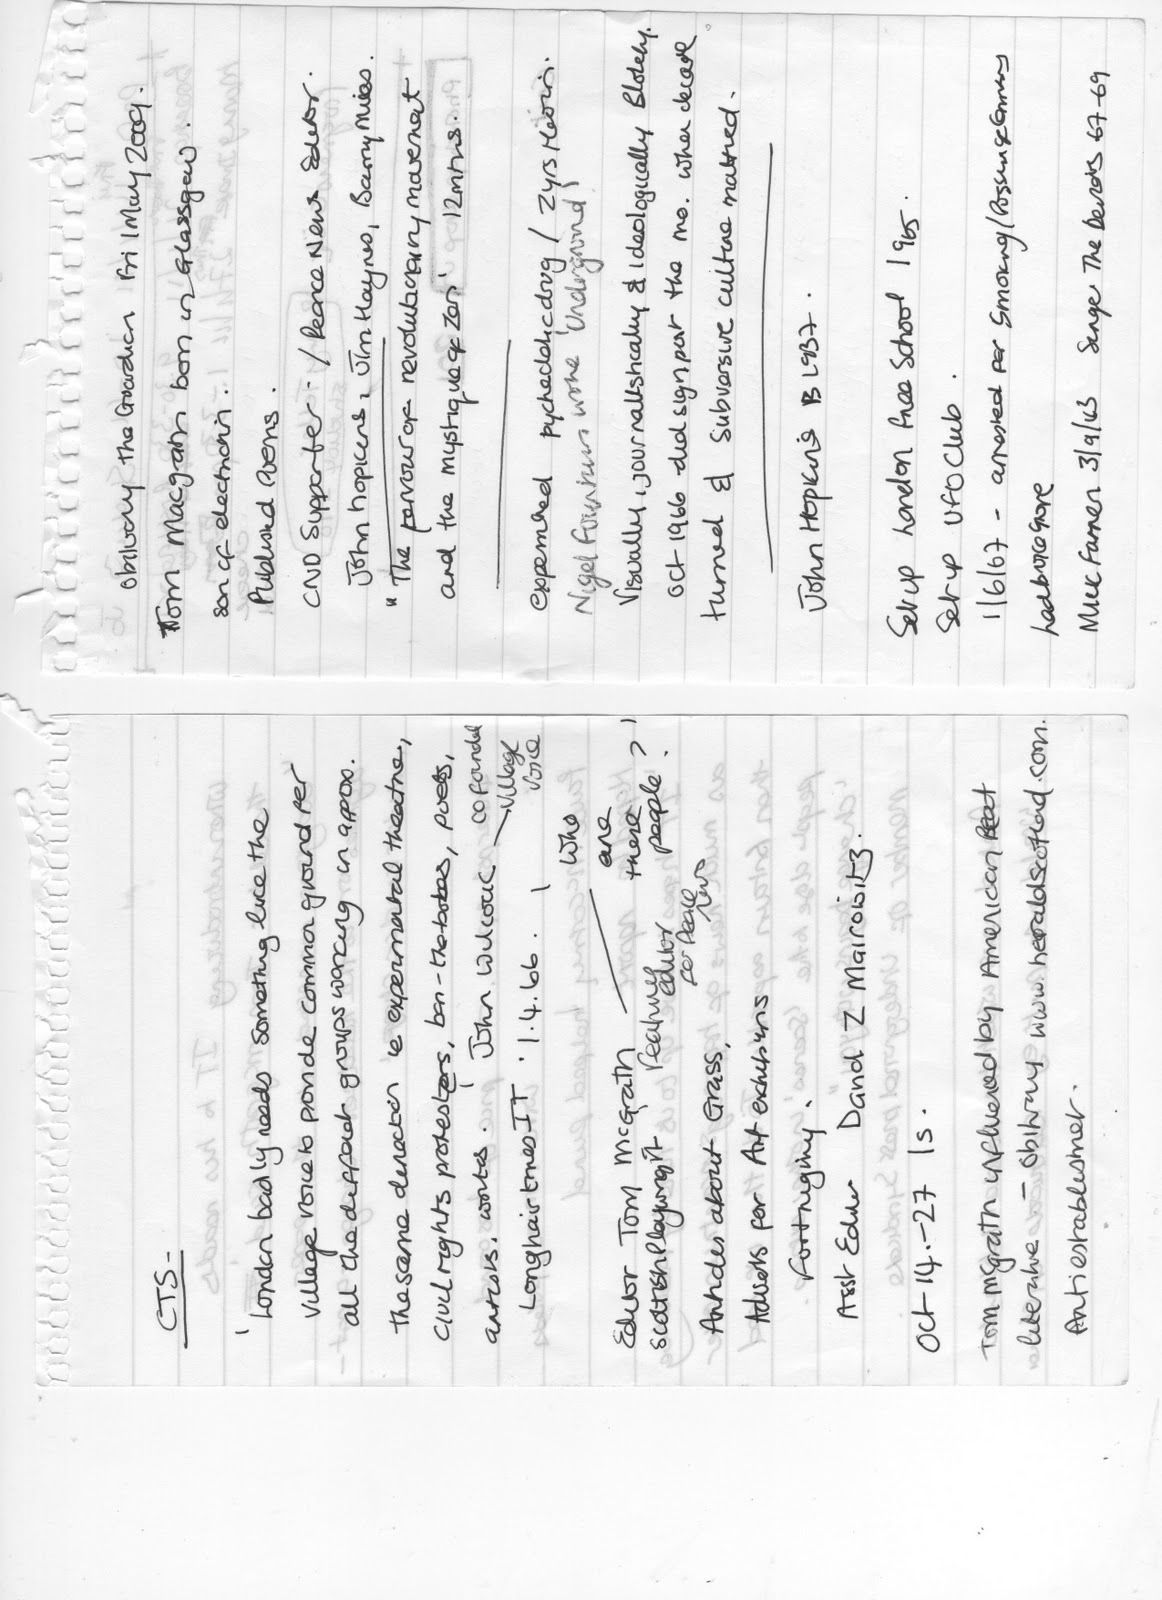 CTS -
'London badly needs something like the
Village voice to provide common ground for
all the different groups working in approx.
the same direction ie experimental theatre,
Civil rights protesters, ban-the-bombs, poets,
artists, works. ' John Wilcock cofounder
Village
Voice
Longhair times IT '1.4.66.
'Who
are
these
people?'
Editor Tom McGrath
Scottish Playwright Features
editor
for Peace
News
Articles about Grass,
Adverts for Art exhibitions
Fortnightly.
Asst Editor David Z Mairowitz.
Oct 14.-27 1s.
Tom McGrath influenced by American Beat
literature - Obituary www.heraldscotland.com.
Antiestablishment.
Obituary the Guardian Fri 1 May 2009.
Tom Macgrath born in Glasgow.
Son of electrician.
Published Poems.
CND Supporter - / Peance News Editor.
John hopkins, Jim Haynes, Barry Miles.
"The fervour of revolutionary movement
and the mystique of Zen' 12 mths.
experienced psychedelic drug / 2yrs Heroin.
Nigel Fountain wrote 'Underground'
Visually, journalistically & ideologically Blotchy.
Oct 1966 did signpost the mo. when decade
turned & Subversive culture mattered.
John Hopkins B 1937.
Set up London Free School 1965.
Set up UFO Club.
1/6/67 - arrested for Smoking/
Ladbroke Grove
Mick Farren 3/9/43 Singer The Deviants 67-69